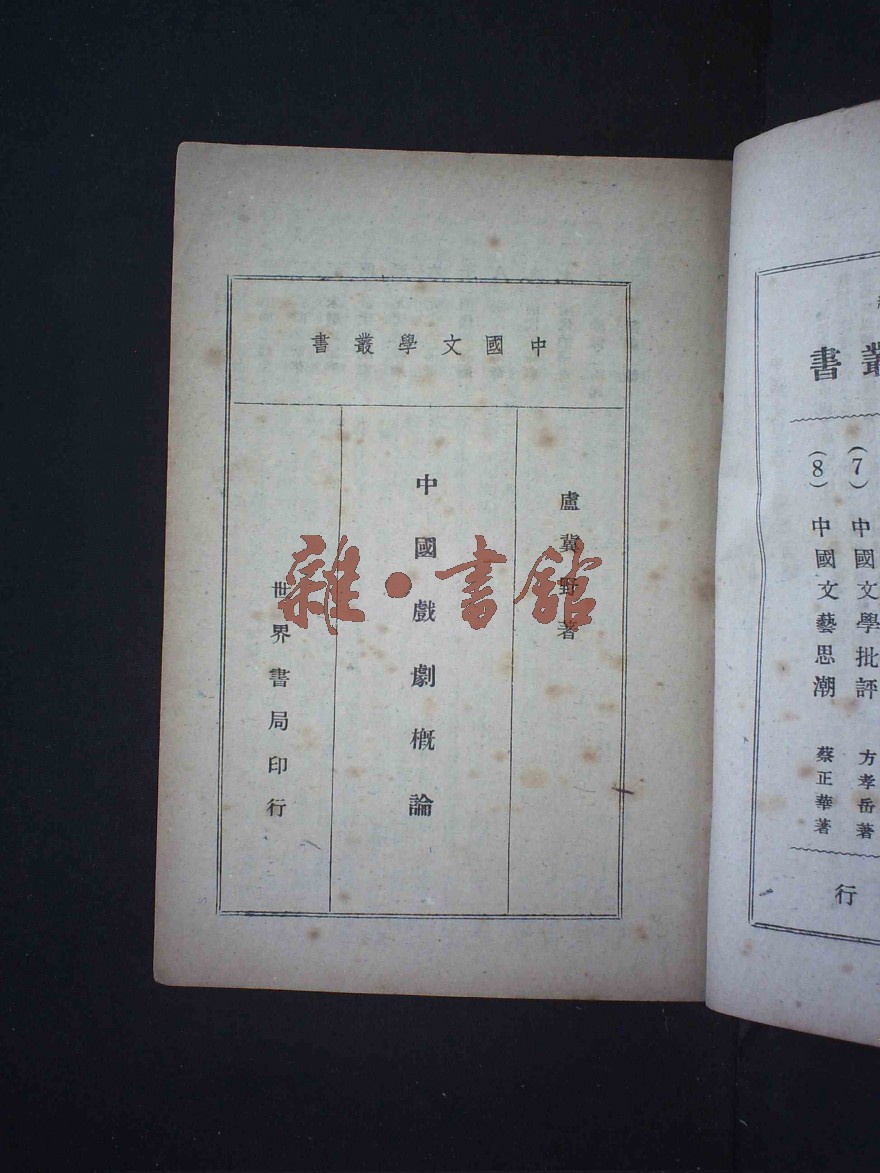 中國文學叢書
盧冀野著
中國戲劇概論
世界書局印行
雜·書館
叢書
(7) 中國文學批評 方孝岳著
(8) 中國文藝思潮 蔡正華著
行